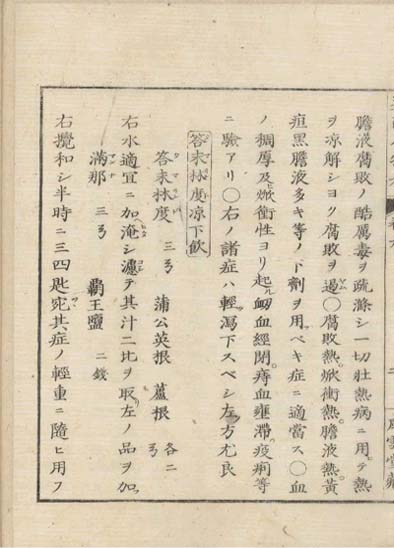 膽液腐敗ノ酷厲毒ヲ疏滌シ一切壯熱病ニ用テ熱
ヲ凉解シヨク腐敗ヲ遏ム〇腐敗熱焮衝熱膽液熱黃
疸黑膽液多キ等ノ下劑ヲ用ベキ症ニ適當ス〇血
ノ稠厚及焮衝性ヨリ起ル衂血經閉痔血壅滯疫痢等
ニ驗アリ〇右ノ諸症ハ輕瀉下スベシ左方尤良
答末林度凉下飲
答末林度 三弓 蒲公英根 蘆根 各二弓
右水適宜ニ加淹シ濾テ其汁二比ヲ取左ノ品ヲ加
滿那 三弓 覇王鹽 二錢
右攪和シ半時ニ三四匙宛其症ノ輕重ニ隨ヒ用フ